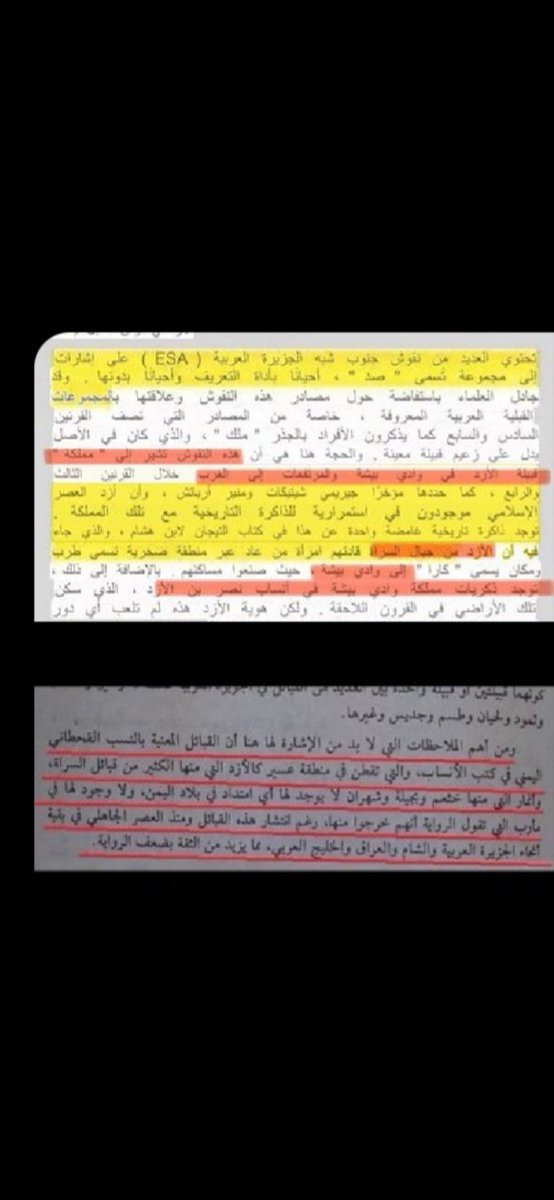 تحتوي العديد من نقوش جنوب شبه الجزيرة العربية ( ESA ) على إشارات
إلى مجموعة تسمى " صد " ، أحيانًا بأداة التعريف وأحيانًا بدونها . وقد
جادل العلماء باستفاضة حول مصادر هذه النقوش وعلاقتها بالمجموعات
القبلية العربية المعروفة ، خاصة من المصادر التي تصف القرنين
السادس والسابع كما يذكرون الأفراد بالجذر " ملك " ، والذي كان في الأصل
يدل على زعيم قبيلة معينة . والحجة هنا هي أن هذه النقوش تشير إلى " مملكة "
قبيلة الأزد في وادي بيشة والمرتفعات إلى الغرب خلال القرنين الثالث
والرابع ، كما حددها مؤخرًا جيريمي شيتيكات ومنير أرباتش ، وأن أزد العصر
الإسلامي موجودون في استمرارية للذاكرة التاريخية مع تلك المملكة .
توجد ذاكرة تاريخية غامضة واحدة عن هذا في كتاب التيجان لابن هشام ، والذي جاء
فيه أن الأزد من جبال السراة قادتهم امرأة من عاد عبر منطقة صخرية تسمى طرب
ومكان يسمى " كارا " إلى وادي بيشة ، حيث صنعوا مساكنهم . بالإضافة إلى ذلك ،
توجد ذكريات مملكة وادي بيشة في أنساب نصر بن الأزد ، الذي سكن
تلك الأراضي في القرون اللاحقة . ولكن هوية الأزد هذه لم تلعب أي دور
كونهما قبيلتين أو قبيلة واحدة بين العديد من القبائل في الجزيرة العربية
وثمود ولحيان وطسم وجديس وغيرها.
ومن أهم الملاحظات التي لا بد من الإشارة لها هنا أن القبائل المعنية بالنسب القحطاني
اليمني في كتب الأنساب، والتي تقطن في منطقة عسير كالأزد التي منها الكثير من قبائل السراة،
وأنمار التي منها خثعم وبجيلة وشهران لا يوجد لها أي امتداد في بلاد اليمن، ولا وجود لها في
مأرب التي تقول الرواية أنهم خرجوا منها، رغم انتشار هذه القبائل ومنذ العصر الجاهلي في بقية
أنحاء الجزيرة العربية والشام والعراق والخليج العربي، مما يزيد من الثقة بضعف الرواية.